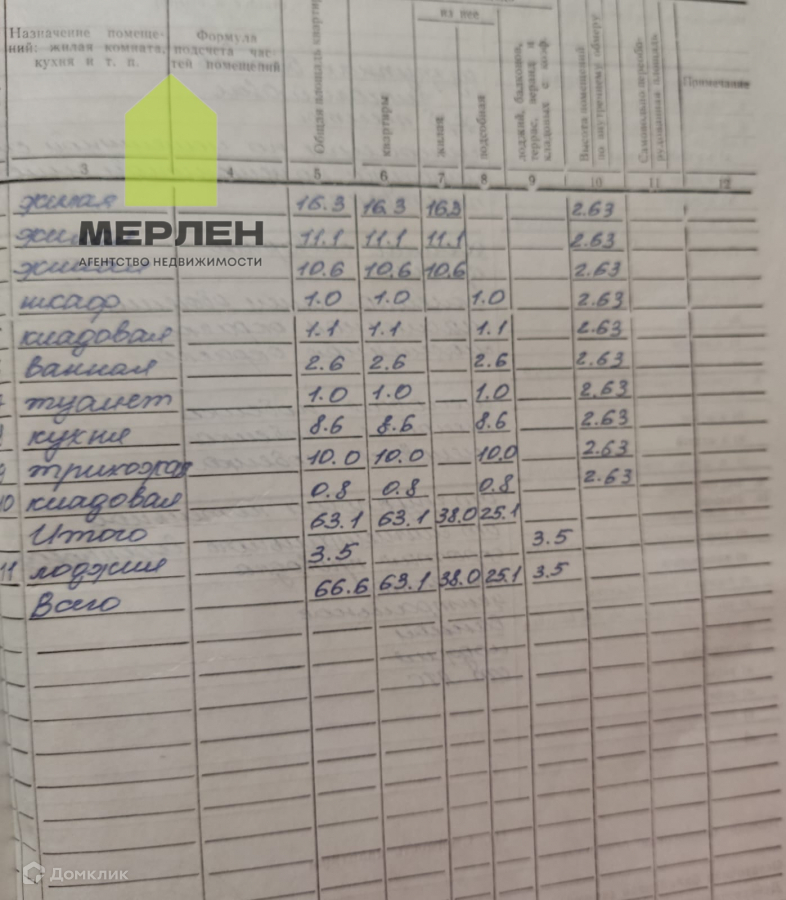 из нее
Назначение помеще-
ний: жилая комната,
кухня и т. п.
Формула
подсчета час-
тей помещений
Общая площадь квартиры
квартиры
жилая
подсобная
лоджий, балконов,
террас, веранд и
кладовых с коэф.
Высота помещений
по внутреннему обмеру
Примечание
3 4 5 6 7 8 9 10 11 12
жилая 16.3 16.3 16.3 2.63
11.1 11.1 11.1 2.63
жилая 10.6 10.6 10.6 2.63
шкаф 1.0 1.0 1.0 2.63
кладовая 1.1 1.1 1.1 2.63
ванная 2.6 2.6 2.6 2.63
туалет 1.0 1.0 1.0 2.63
кухня 8.6 8.6 8.6 2.63
9 10.0 10.0 10.0 2.63
10 кладовая 0.8 0.8 0.8 2.63
Итого 63.1 63.1 38.0 25.1
11 лоджия 3.5 3.5
Всего 66.6 63.1 38.0 25.1 3.5
МЕРЛЕН
АГЕНТСТВО НЕДВИЖИМОСТИ
Домклик